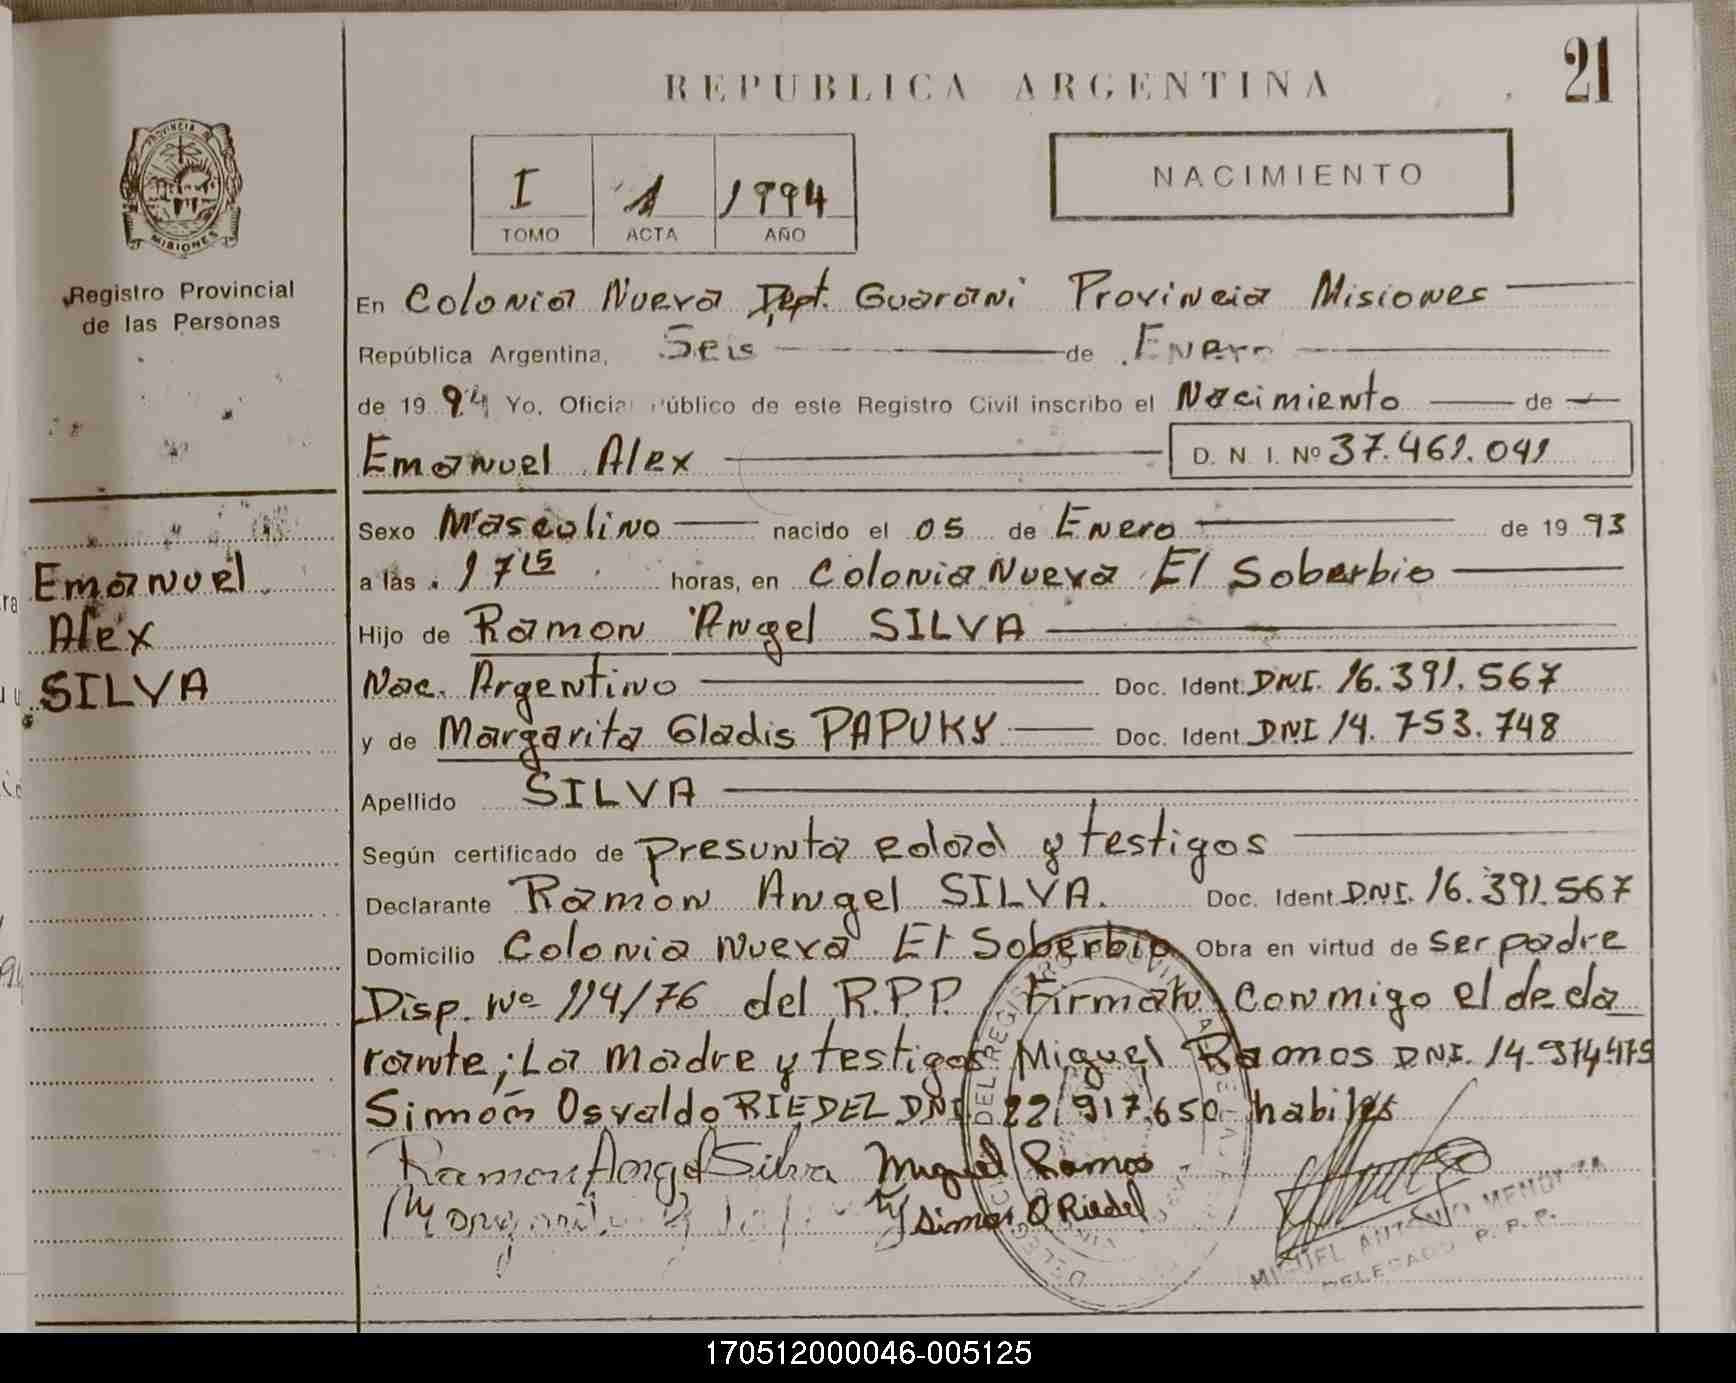 REPUBLICA ARGENTINA
21
PROVINCIA
MISIONES
Registro Provincial
de las Personas
I 1 1994
TOMO ACTA AÑO
NACIMIENTO
En Colonia Nueva Dept. Guarani Provincia Misiones
República Argentina, Seis de Enero
de 1994 Yo, Oficial Público de este Registro Civil inscribo el Nacimiento de
Emanuel Alex D. N. I. Nº 37.461.041
Sexo Masculino nacido el 05 de Enero de 1993
a las 17 15 horas, en Colonia Nueva El Soberbio
Hijo de Ramon Angel SILVA
Nac. Argentino Doc. Ident. DNI. 16.391.567
y de Margarita Gladis PAPUKY Doc. Ident. DNI 14.753.748
Apellido SILVA
Según certificado de presunta edad y testigos
Declarante Ramon Angel SILVA. Doc. Ident. DNI. 16.391.567
Domicilio Colonia Nueva El Soberbio Obra en virtud de ser padre
Disp. Nº 114/76 del R.P.P. Firman conmigo el decla
rante; La madre y testigos Miguel Ramos DNI. 14.974.475
Simón Osvaldo RIEDEL DNI 22.917.650 habiles
Ramon Angel Silva Miguel Ramos
Simon O Riedel
MIGUEL ANTONIO MENDOZA
DELEGADO R. P. P.
Emanuel
Alex
SILVA
170512000046-005125